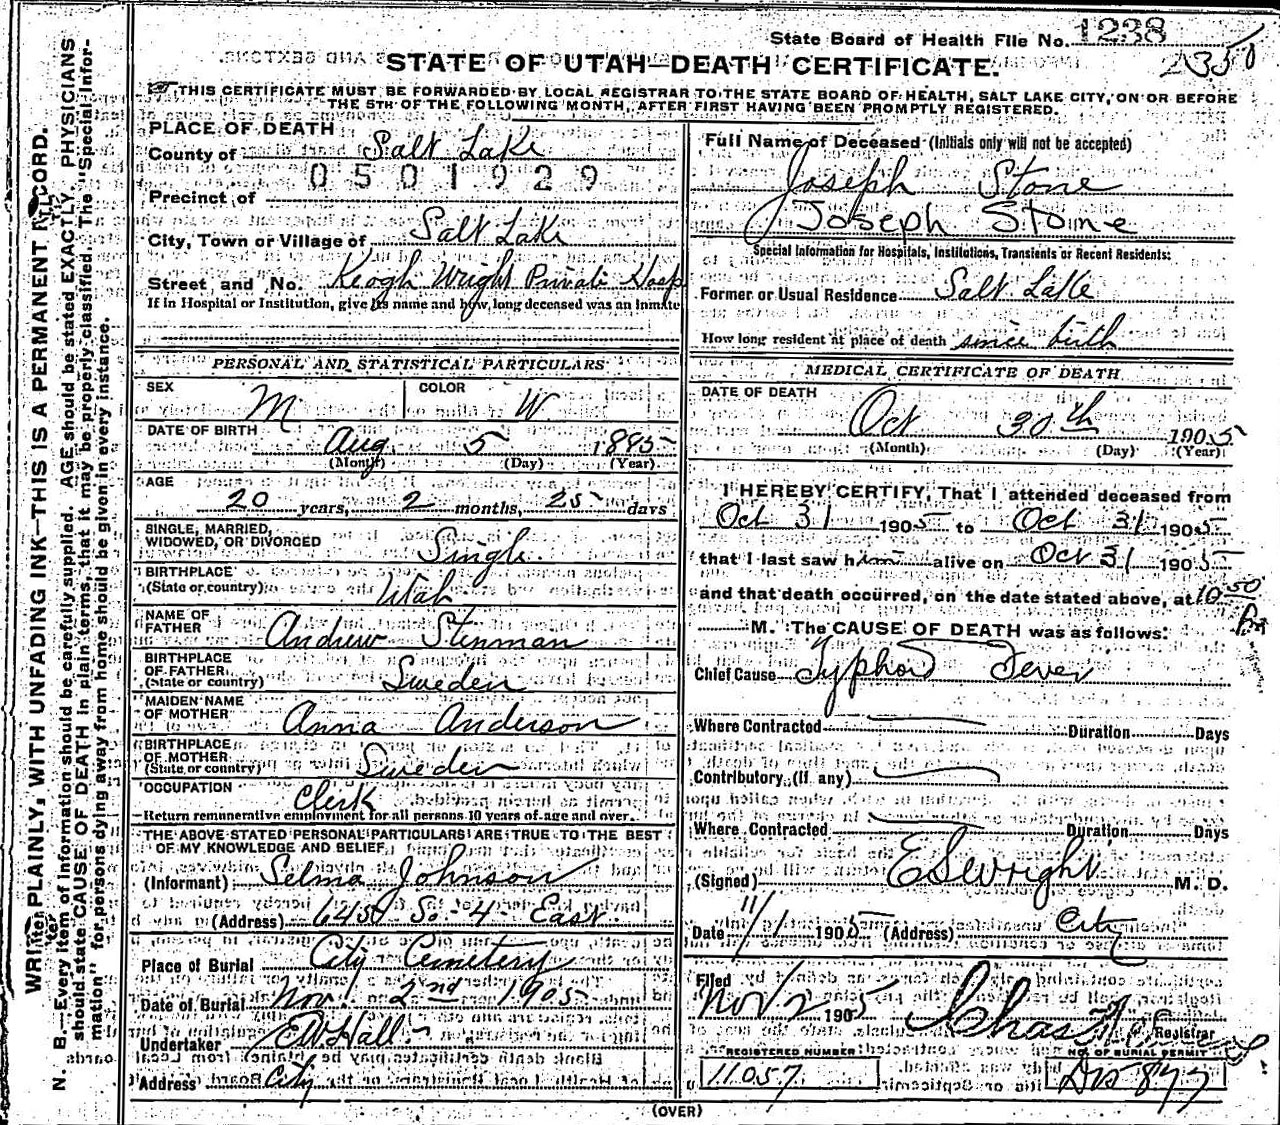 State Board of Health File No. 1238
2350
STATE OF UTAH—DEATH CERTIFICATE.
THIS CERTIFICATE MUST BE FORWARDED BY LOCAL REGISTRAR TO THE STATE BOARD OF HEALTH, SALT LAKE CITY, ON OR BEFORE
THE 5TH OF THE FOLLOWING MONTH, AFTER FIRST HAVING BEEN PROMPTLY REGISTERED.
WRITE PLAINLY, WITH UNFADING INK—THIS IS A PERMANENT RECORD.
N. B.—Every item of information should be carefully supplied. AGE should be stated EXACTLY. PHYSICIANS
should state CAUSE OF DEATH in plain terms, that it may be properly classified. The "Special Infor-
mation" for persons dying away from home should be given in every instance.
PLACE OF DEATH
County of Salt Lake
0501929
Precinct of
City, Town or Village of Salt Lake
Street and No. Keogh Wright Private Hosp
If in Hospital or Institution, give its name and how long deceased was an inmate
PERSONAL AND STATISTICAL PARTICULARS
SEX M COLOR W
DATE OF BIRTH Aug. 5 1885
(Month) (Day) (Year)
AGE
20 years, 2 months, 25 days
SINGLE, MARRIED,
WIDOWED, OR DIVORCED Single
BIRTHPLACE
(State or country) Utah
NAME OF
FATHER Andrew Stenman
BIRTHPLACE
OF FATHER
(State or country) Sweden
MAIDEN NAME
OF MOTHER Anna Anderson
BIRTHPLACE
OF MOTHER
(State or country) Sweden
OCCUPATION Clerk
Return remunerative employment for all persons 10 years of age and over.
THE ABOVE STATED PERSONAL PARTICULARS ARE TRUE TO THE BEST
OF MY KNOWLEDGE AND BELIEF.
(Informant) Selma Johnson
(Address) So-4-East.
Place of Burial City Cemetery
Date of Burial Nov 2nd 1905
Undertaker E W Hall
Address City
Full Name of Deceased (Initials only will not be accepted)
Joseph Stone
Joseph Stone
Special Information for Hospitals, Institutions, Transients or Recent Residents:
Former or Usual Residence Salt Lake
How long resident at place of death since birth
MEDICAL CERTIFICATE OF DEATH
DATE OF DEATH
Oct 30th 1905
(Month) (Day) (Year)
I HEREBY CERTIFY, That I attended deceased from
Oct 31 1905 to Oct 31 1905
that I last saw him alive on Oct 31 1905
and that death occurred, on the date stated above, at 10.50
M. The CAUSE OF DEATH was as follows:
Chief Cause Typhoid Fever
Where Contracted Duration Days
Contributory, (If any)
Where Contracted Duration Days
(Signed) E S Wright M. D.
Date 11/1 1905 (Address) City
Filed
Nov 2 1905 Chas
Registrar
REGISTERED NUMBER NO. OF BURIAL PERMIT
11057
(OVER)